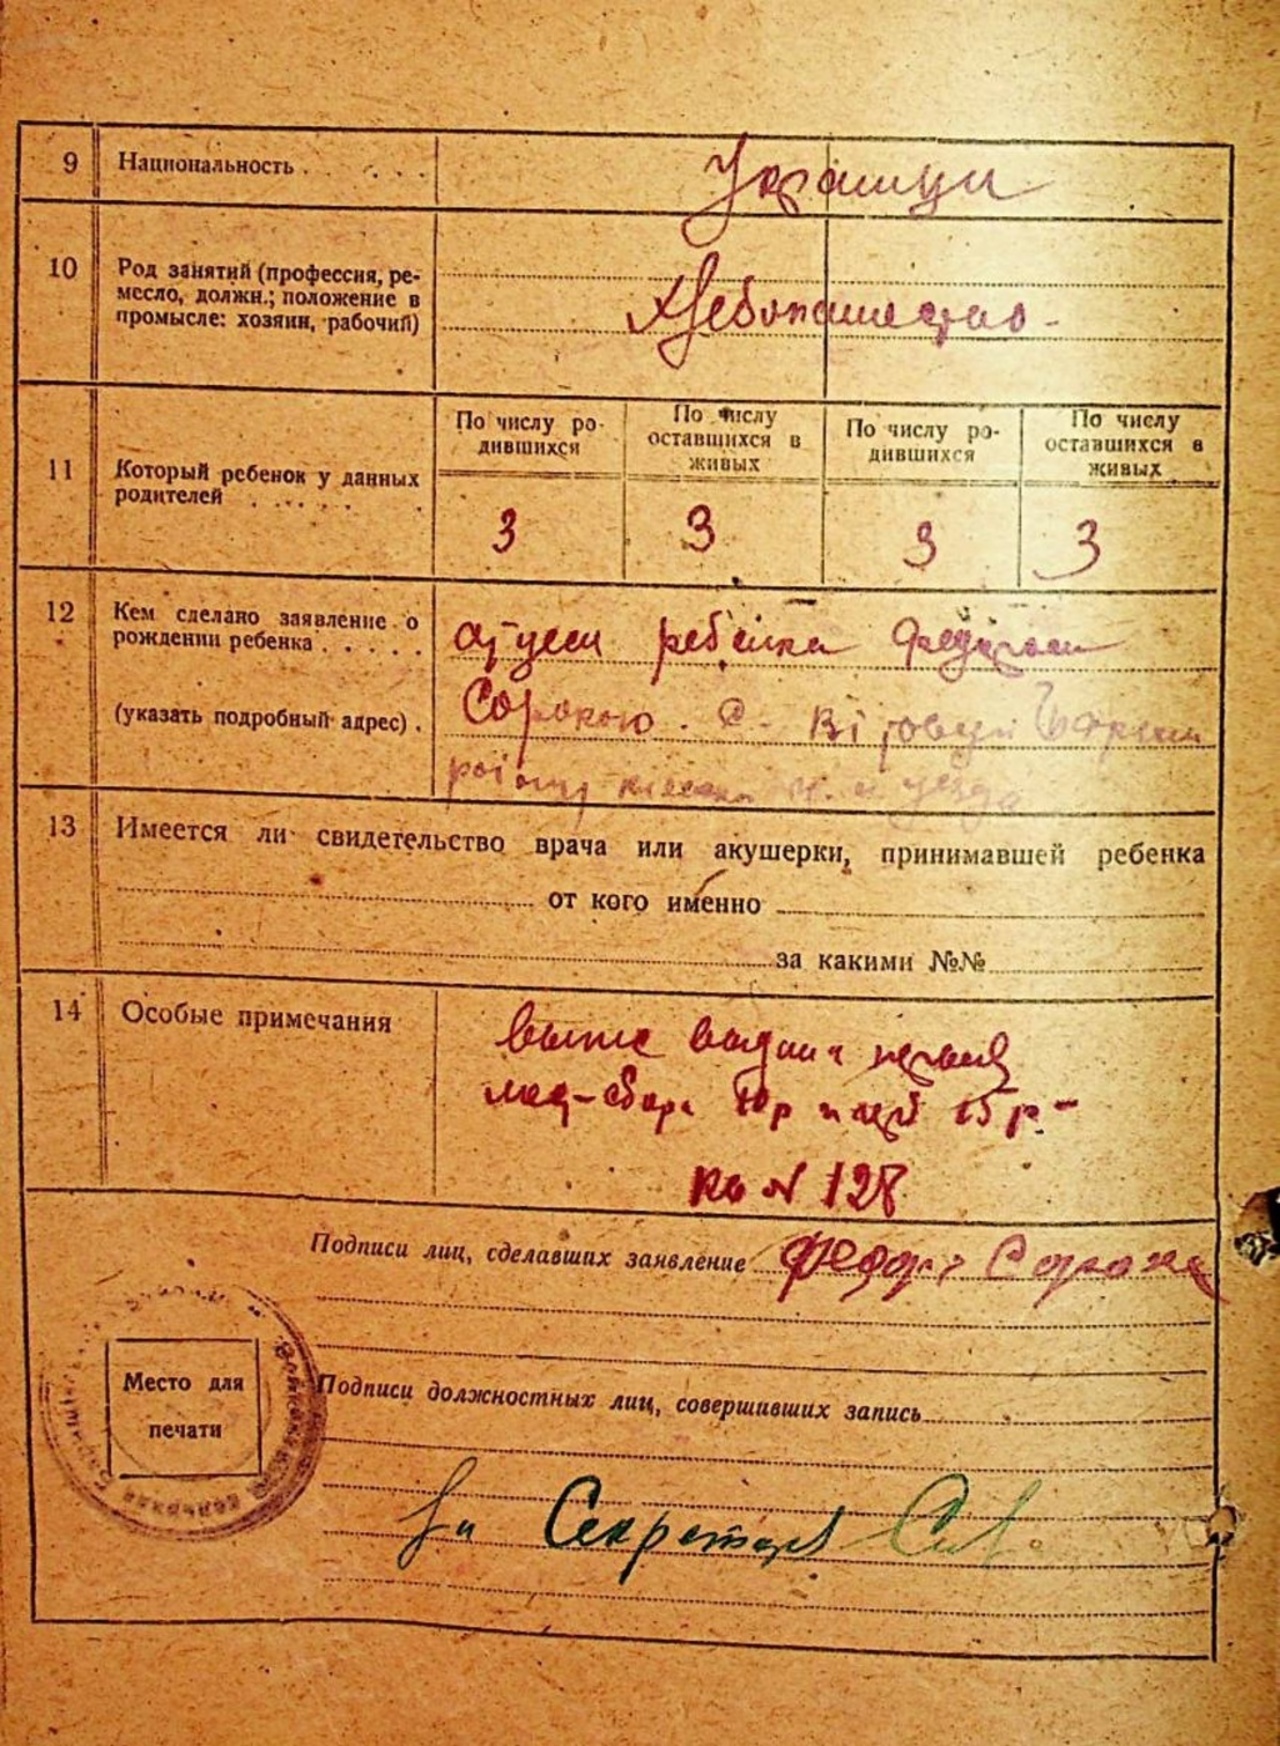 9 Национальность . . . . . Украинци
10 Род занятий (профессия, ре-
месло, должн.; положение в
промысле: хозяин, рабочий)
Хлебопашество -
11 Который ребенок у данных
родителей . . . . . .
По числу ро-
дившихся
По числу
оставшихся в
живых
По числу ро-
дившихся
По числу
оставшихся в
живых
3 3 3 3
12 Кем сделано заявление о
рождении ребенка . . . . .
(указать подробный адрес) .
отцем ребенка
Сорокою . С.
13 Имеется ли свидетельство врача или акушерки, принимавшей ребенка
от кого именно
за какими №№
14 Особые примечания
15 р. -
№ 128
Подписи лиц, сделавших заявление Федор Сорока
Место для
печати
Подписи должностных лиц, совершивших запись
За Секретаря